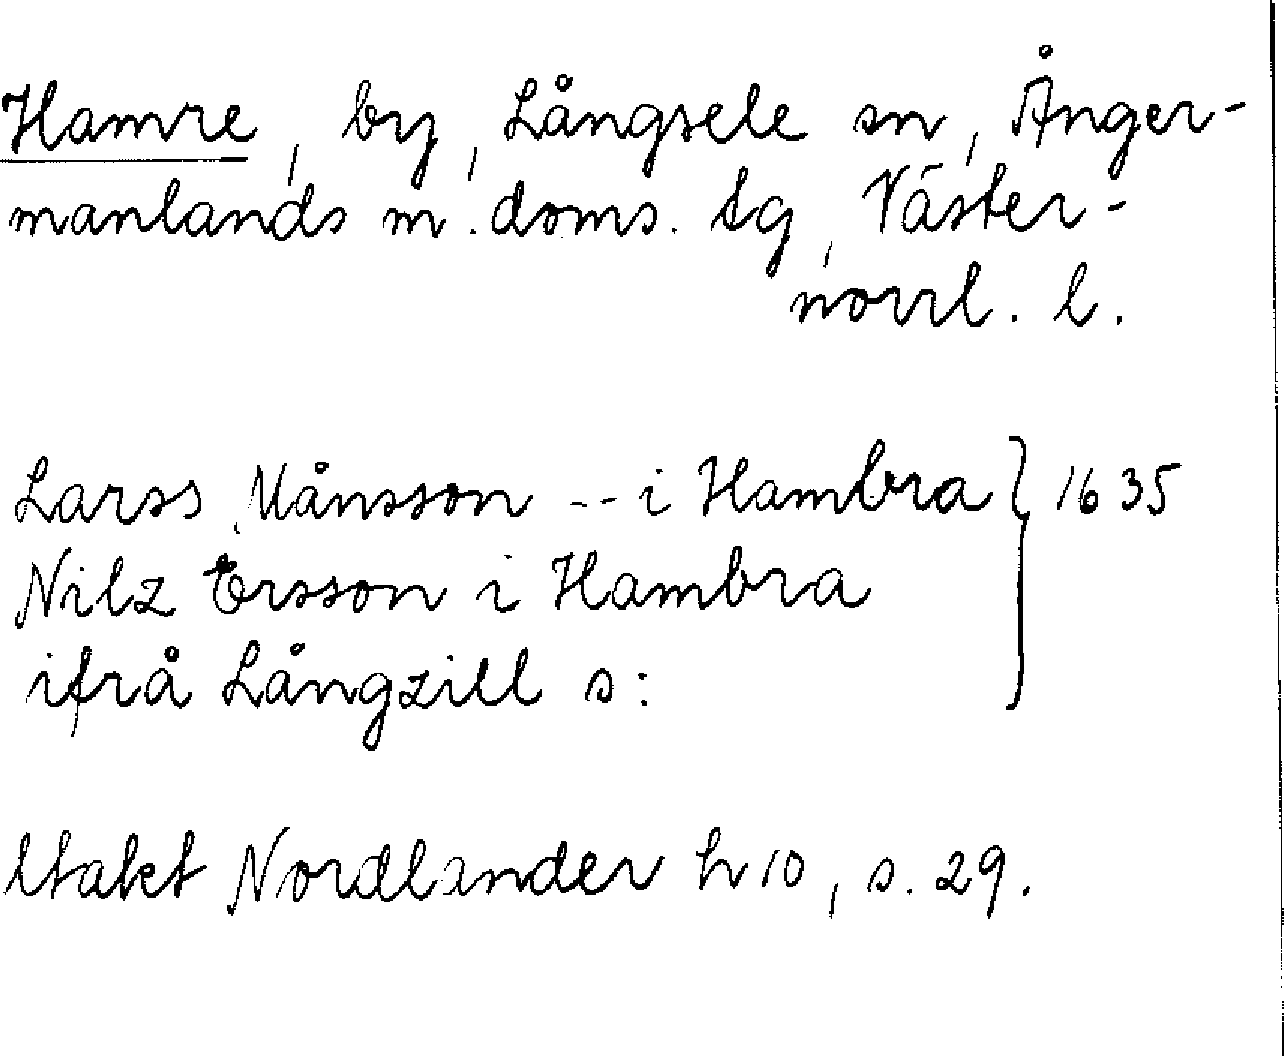 Hamre, by, Långsele sn, Ånger-
manlands m. doms. tg, Väster-
norrl. l.
Larss Månsson -- i Hambra } 1635
Nilz Ersson i Hambra
ifrå Långzill s:
Nordlander h 10, s. 29.